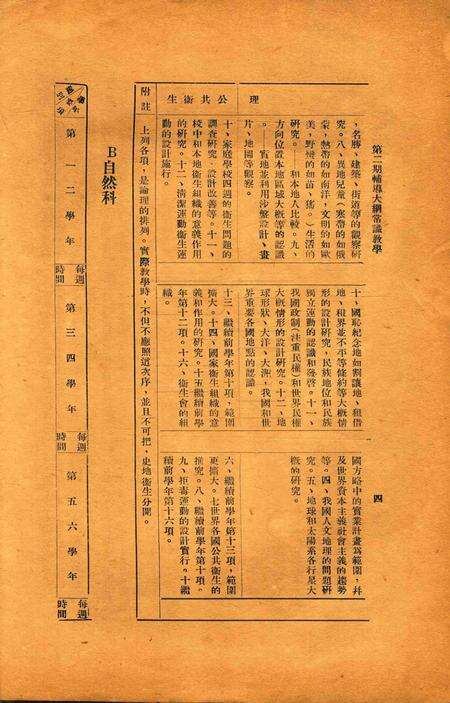 第二期輔導大綱常識教學
四
理
、名勝、建築、街道等的觀察研
究。八、異地兒童(寒帶的如俄
蒙,熱帶的如南洋,文明的如歐
美,野蠻的如苗,猺。)生活的
研究。——和本地人比較。九、
方向位置本地區域大概等的認識
。——實地並利用沙盤設計、畫
片、地圖等觀察。
十、國恥紀念地如割讓地、租借
地、租界並不平等條約等大概情
形的設計研究,民族地位和民族
獨立運動的認識和啓。十一、
我國政制(注重民權)和世界民權
大概情形的設計研究。十二、地
球形狀、大洋、大洲,我國和世
界重要各國地點的認識。
國方略中的實業計畫爲範圍,幷
及世界資本主義社會主義的趨勢
等。四、我國人文地理的問題研
究。五、地球和太陽系各行星大
概的研究。
公共衛生
十、家庭學校四週的衛生問題的
調查研究,設計改善等。十一、
校中和本地衛生組織的意義作用
的研究。十二、清潔運動衛生運
動的設計施行。
十三、繼續前學年第十項,範圍
擴大。十四、國家衛生組織的意
義和作用的研究。十五繼續前學
年第十二項。十六、衛生會的組
織。
六、繼續前學年第十三項,範圍
更擴大。七世界各國公共衛生的
研究。八、繼續前學年第十項。
九、拒毒運動的設計實行。十繼
續前學年第十六項。
附註
上列各項,是論理的排列。實際教學時,不但不應照這次序,並且不可把,史地衛生分開。
B自然科
第一二學年
每週時間
第三四學年
每週時間
第五六學年
每週時間